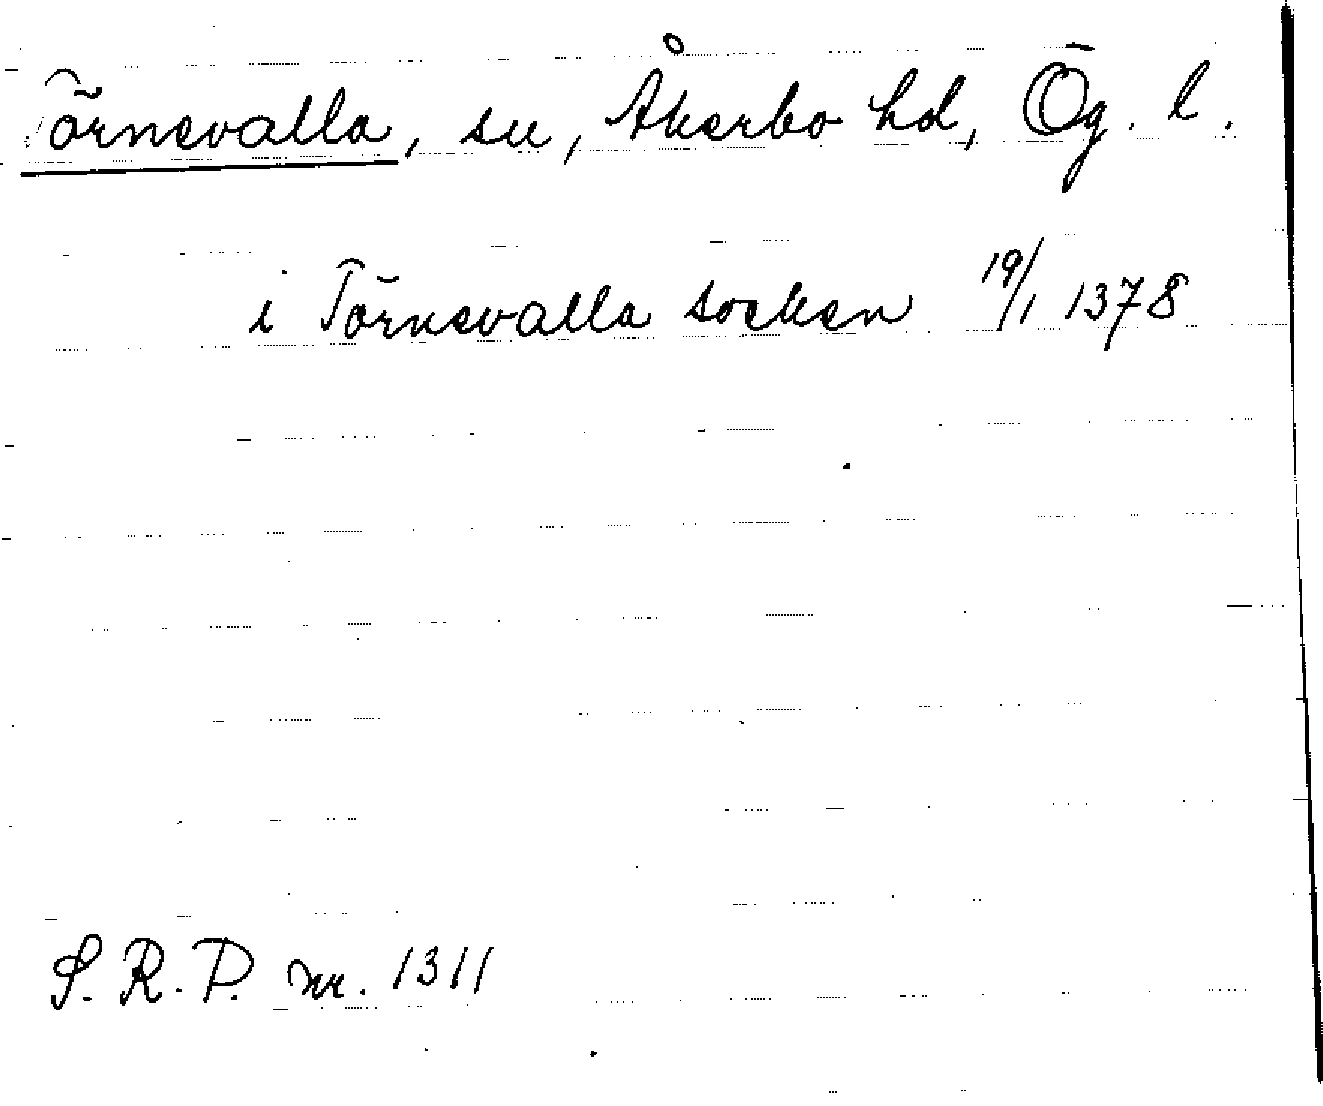 Törnevalla, sn, Åkerbo hd, Ög. l.
i Törnevalla socken 19/1 1378
S.R.P. nr. 1311